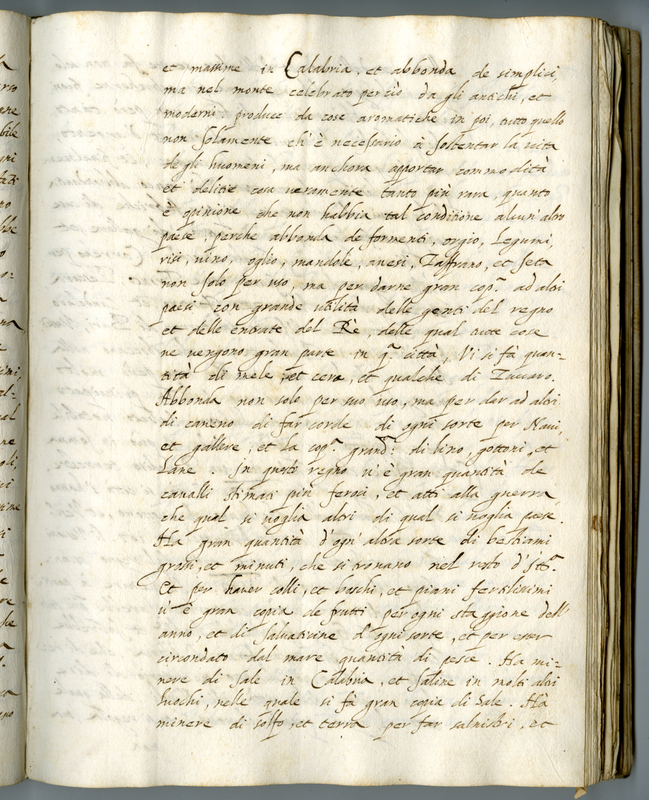 et massime in Calabria, et abbonda de simplici,
ma nel monte celebrato perciò da gli antichi, et
moderni. produce da cose aromatiche in poi, tutto quello
non solamente ch'è necessario à sostentar la vita
de gli huomeni, ma anchora apportar commodità
et delitie cosa veramente tanto più rara, quanto
è opinione che non habbia tal conditione alcun'altro
paese, perche abbonda de formenti, orgio, Legumi,
risi, vino, oglio, mandole, anesi, Zaffrano, et seta
non solo per uso, ma per darne gran cop.ª ad altri
paesi con grande utilità delle genti del regno
et delle entrate del Rè, delle qual tutte cose
ne vengono gran parte in q.ª città, Vi si fà quan-
tità di mele, et cera, et qualche di Zuccaro.
Abbonda non solo per suo uso, ma per dar ad altri
di caneno di far corde di ogni sorte per Navi,
et gallere, et da cop.ª grand: di lino, gottoni, et
Lane. In questo regno v'è gran quantità de
cavalli stimati più feroci, et atti alla guerra
che qual si voglia altri di qual si voglia paese.
Ha gran quantità d'ogn'altra sorte di bestiami
grossi, et minuti, che si trovano nel resto d'Ital.ª
Et per haver colli, et boschi, et piani fertilissimi
v'è gran copia de frutti per ogni staggione dell'
anno, et di salvaticine d'ogni sorte, et per esser
circondato dal mare quantità di pesce. Ha mi-
nere di sale in Calabria, et saline in molti altri
luochi, nelle quale si fà gran copia di sale. Ha
minere di solfo, et terra per far salnitri, et